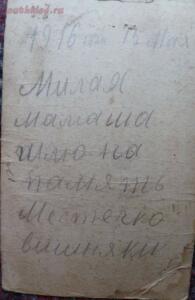 1916 года 13 Мая
Милая
мамаша
шлю на
память
Местечко
вишняки